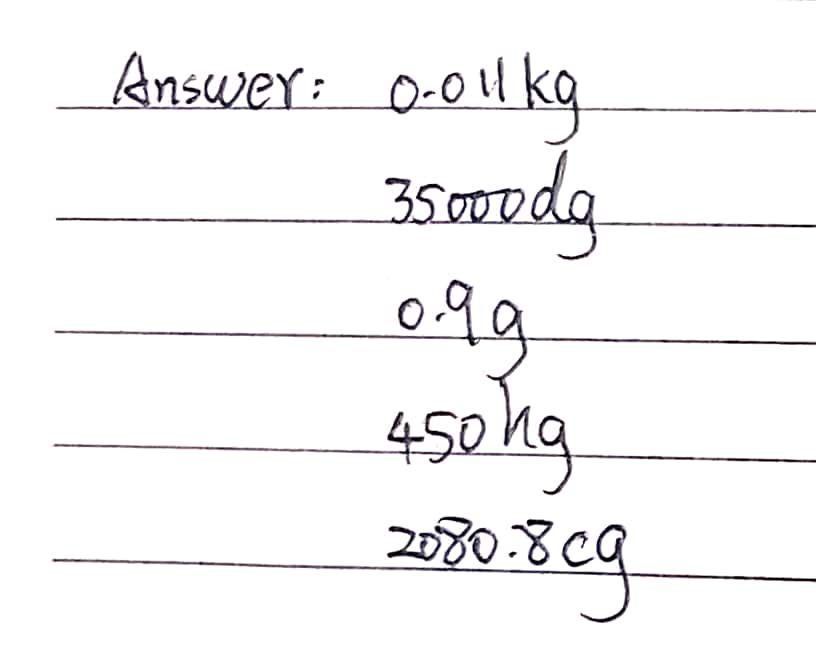 Answer: 0.011kg
35000dg
0.9g
450hg
2080.8cg